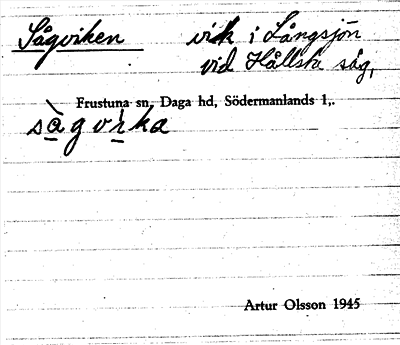 Sågviken vik i Långsjön
vid Hållsta såg,
Frustuna sn, Daga hd, Södermanlands l,.
sàgvika
Artur Olsson 1945